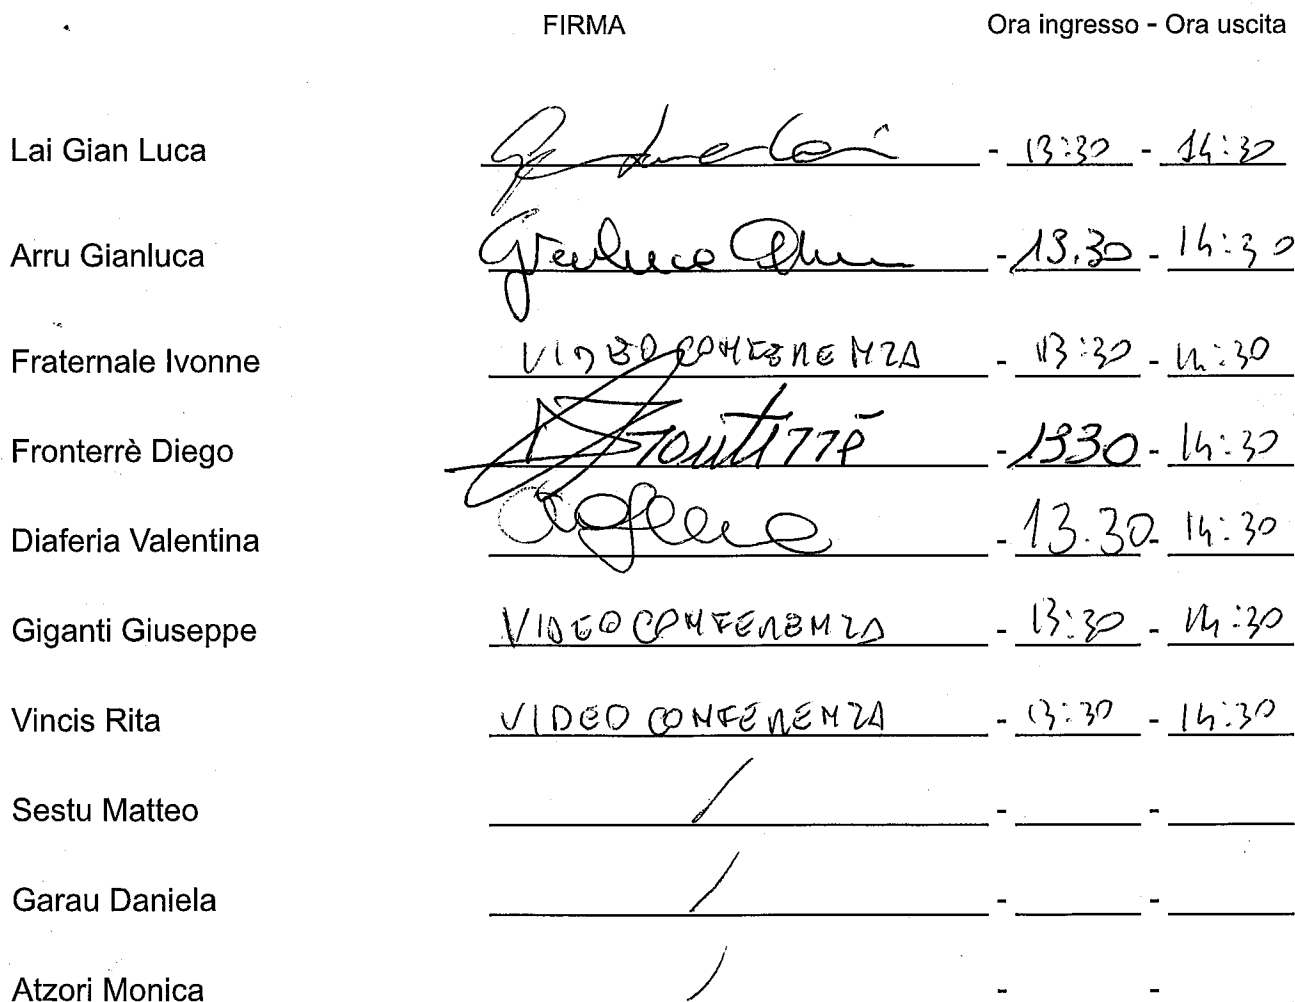 FIRMA Ora ingresso - Ora uscita
Lai Gian Luca - 13:30 - 14:30
Arru Gianluca Gianluca Arru - 13.30 - 14:30
Fraternale Ivonne VIDEOCONFERENZA - 13:30 - 14:30
Fronterrè Diego Fronterrè - 1330 - 14:30
Diaferia Valentina - 13.30 - 14:30
Giganti Giuseppe VIDEOCONFERENZA - 13:30 - 14:30
Vincis Rita VIDEO CONFERENZA - 13:30 - 14:30
Sestu Matteo / - -
Garau Daniela / - -
Atzori Monica / - -